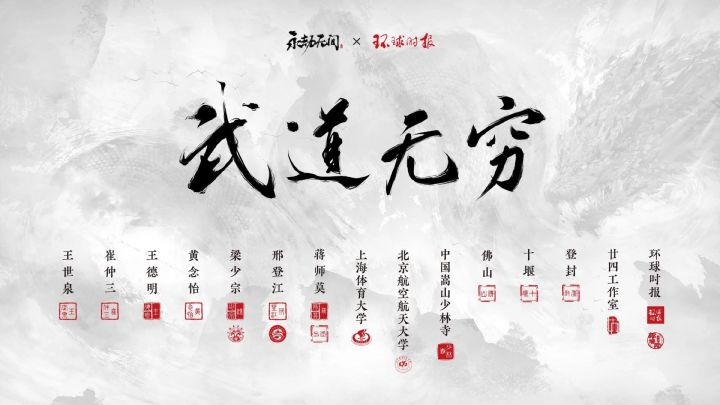 永劫无间 × 环球时报
武道无穷
环球时报
廿四工作室
登封
十堰
佛山
中国嵩山少林寺
北京航空航天大学
上海体育大学
蒋师莫
邢登江
梁少宗
黄念怡
王德明
崔仲三
王世泉